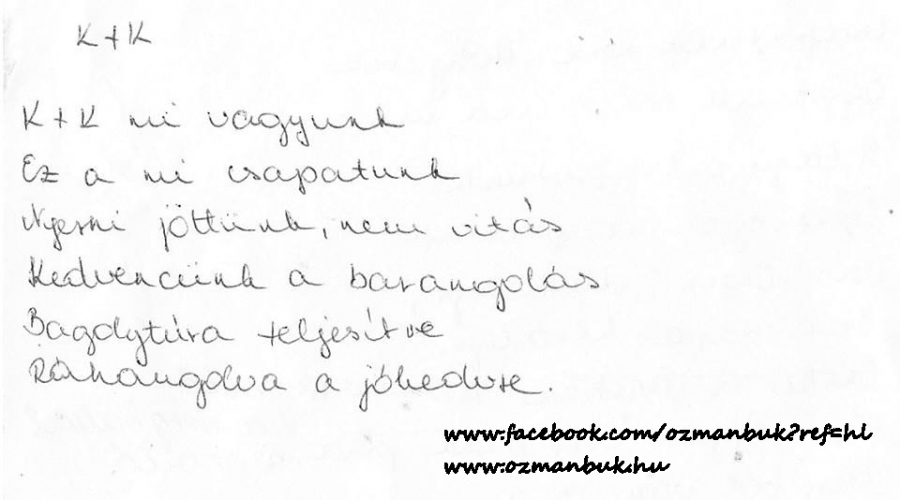 K+K
K+K mi vagyunk
Ez a mi csapatunk
Nyerni jöttünk, nem vitás
Kedvencünk a barangolás
Bagdytúra teljesítve
Ráhangolva a jókedvre.
www.facebook.com/ozmanbuk?ref=hl
www.ozmanbuk.hu